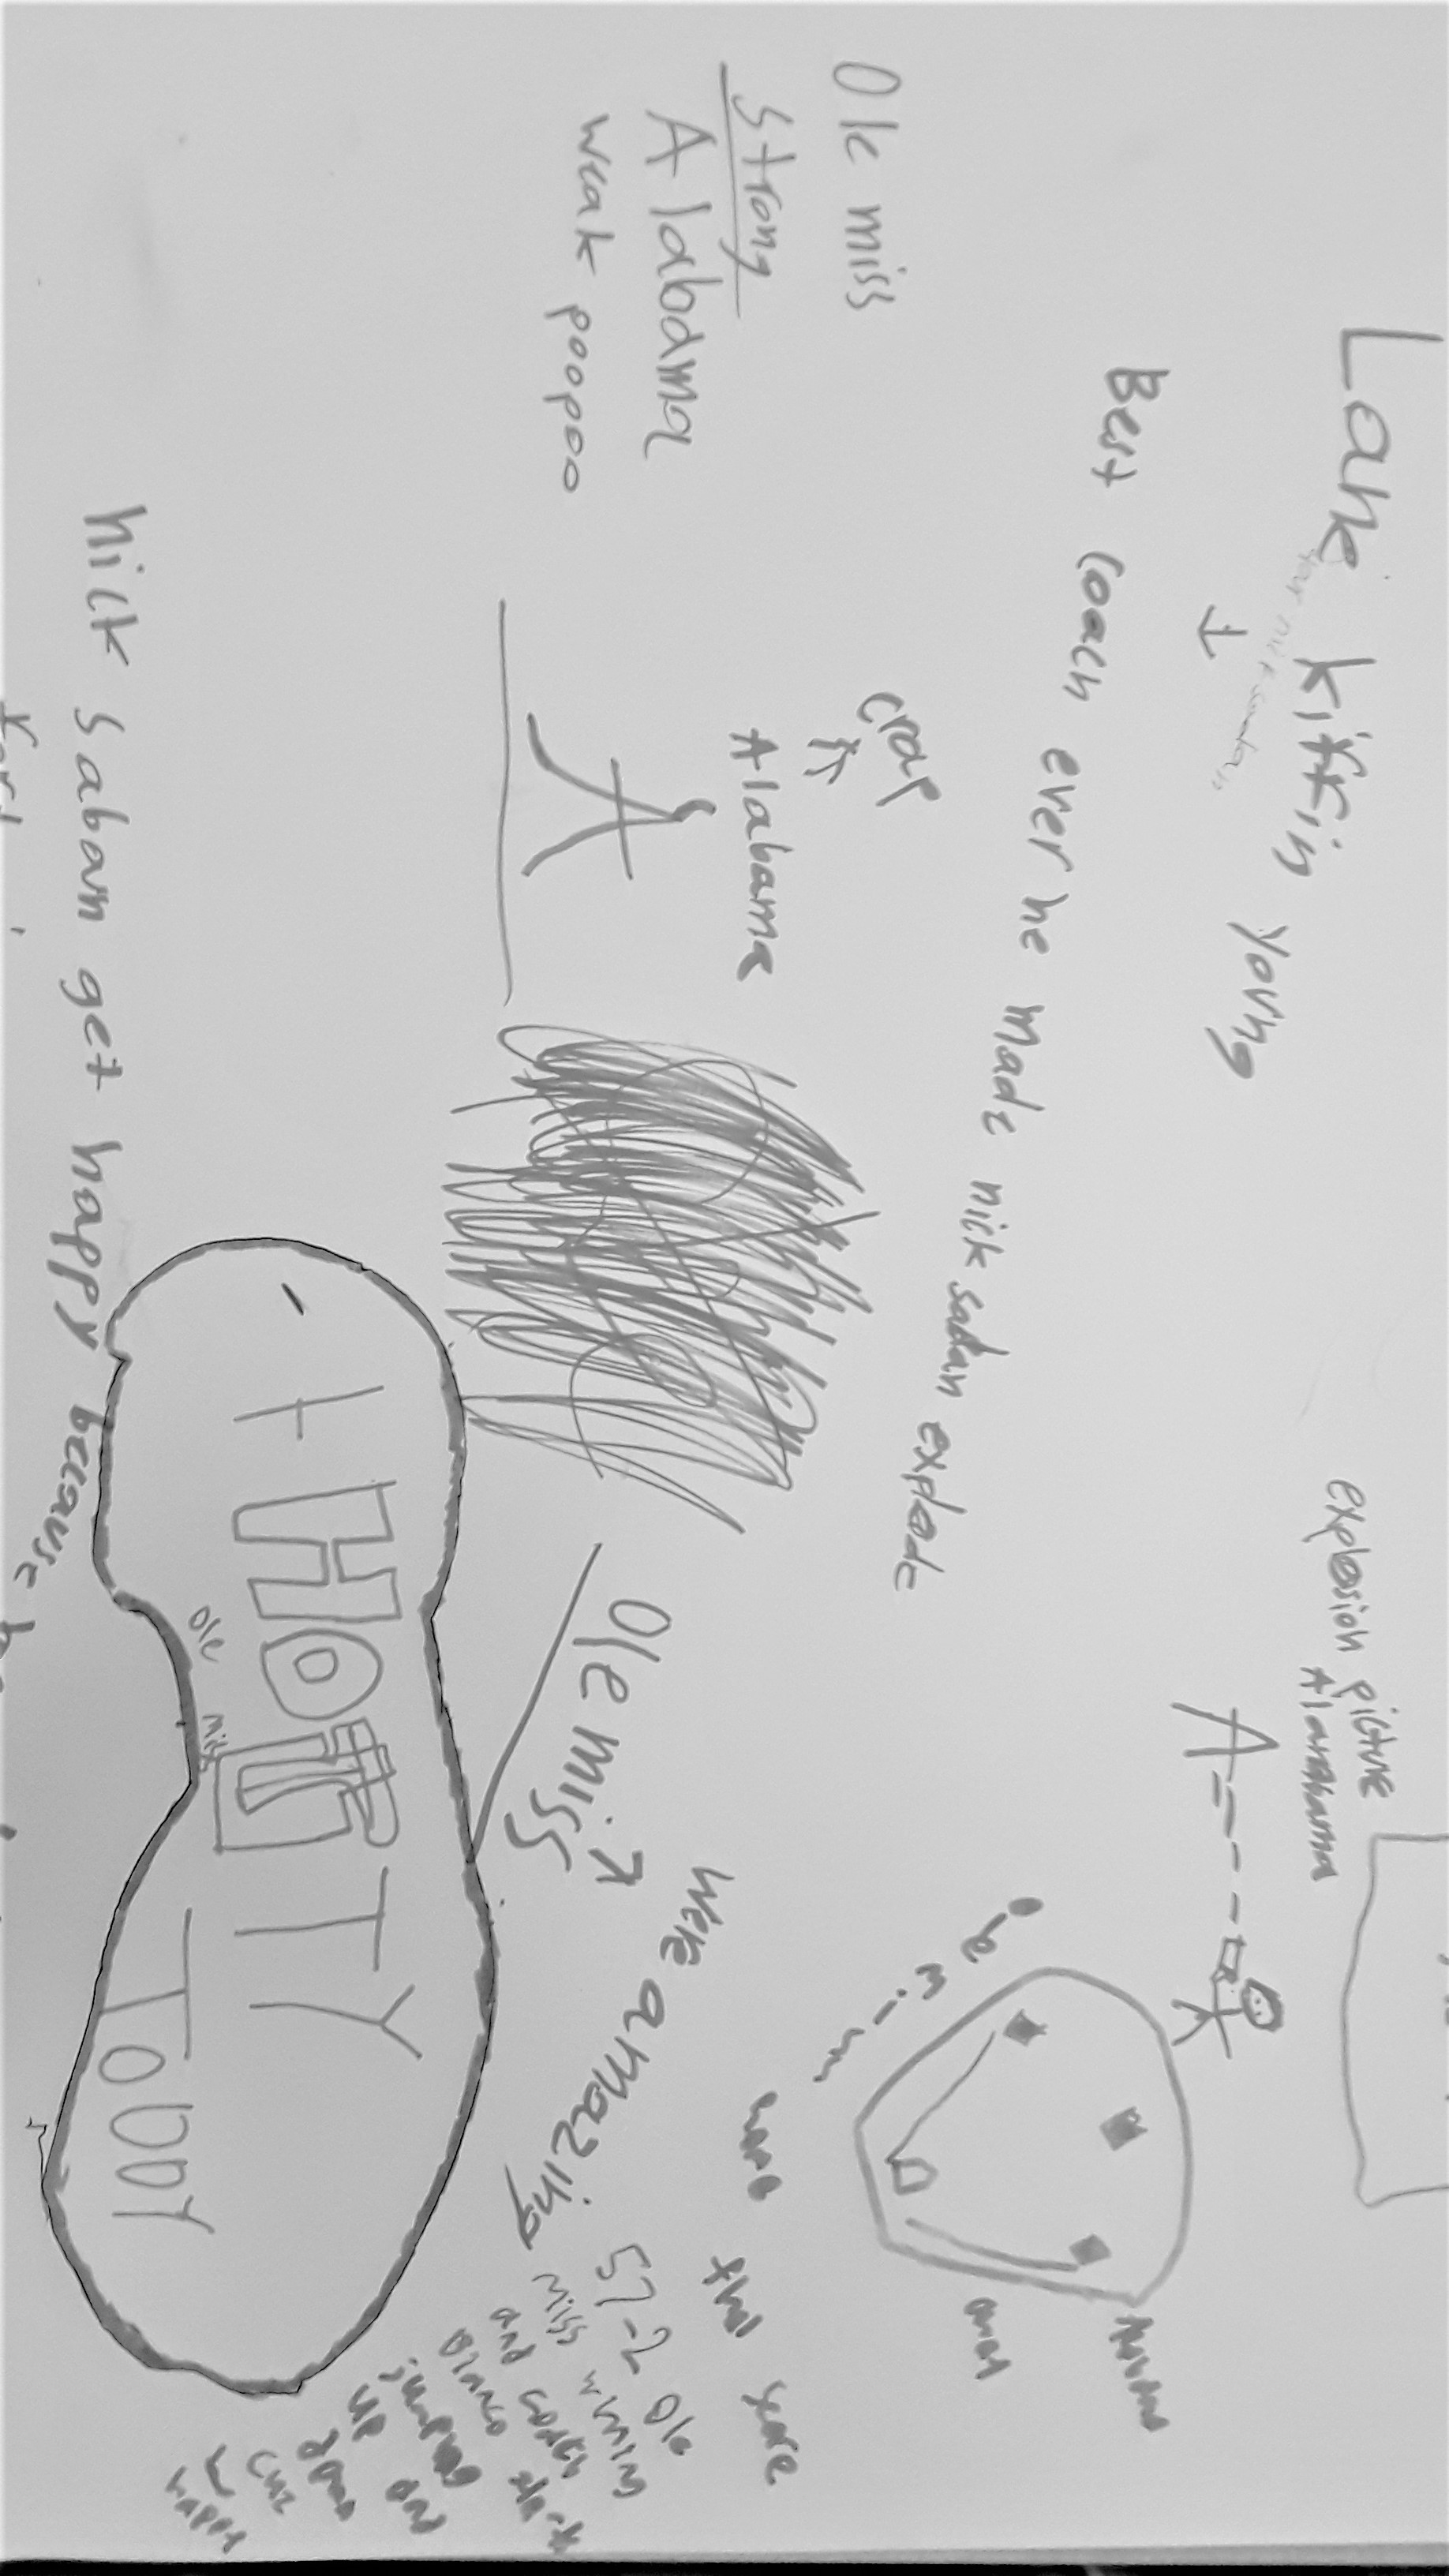 Lane kiffin young
your nick saban
Best coach ever he made nick saban explode
explosion picture
Alabama
A
Ole miss
home
Ole miss
strong
Alabama
weak poopoo
crap
Alabama
A
Ole miss
were amazing
final score
57-2 Ole
miss winning
and coach
Bianco
jumping
up and
down
cuz
happy
HOTTY
Ole miss
TODDY
nick saban get happy because